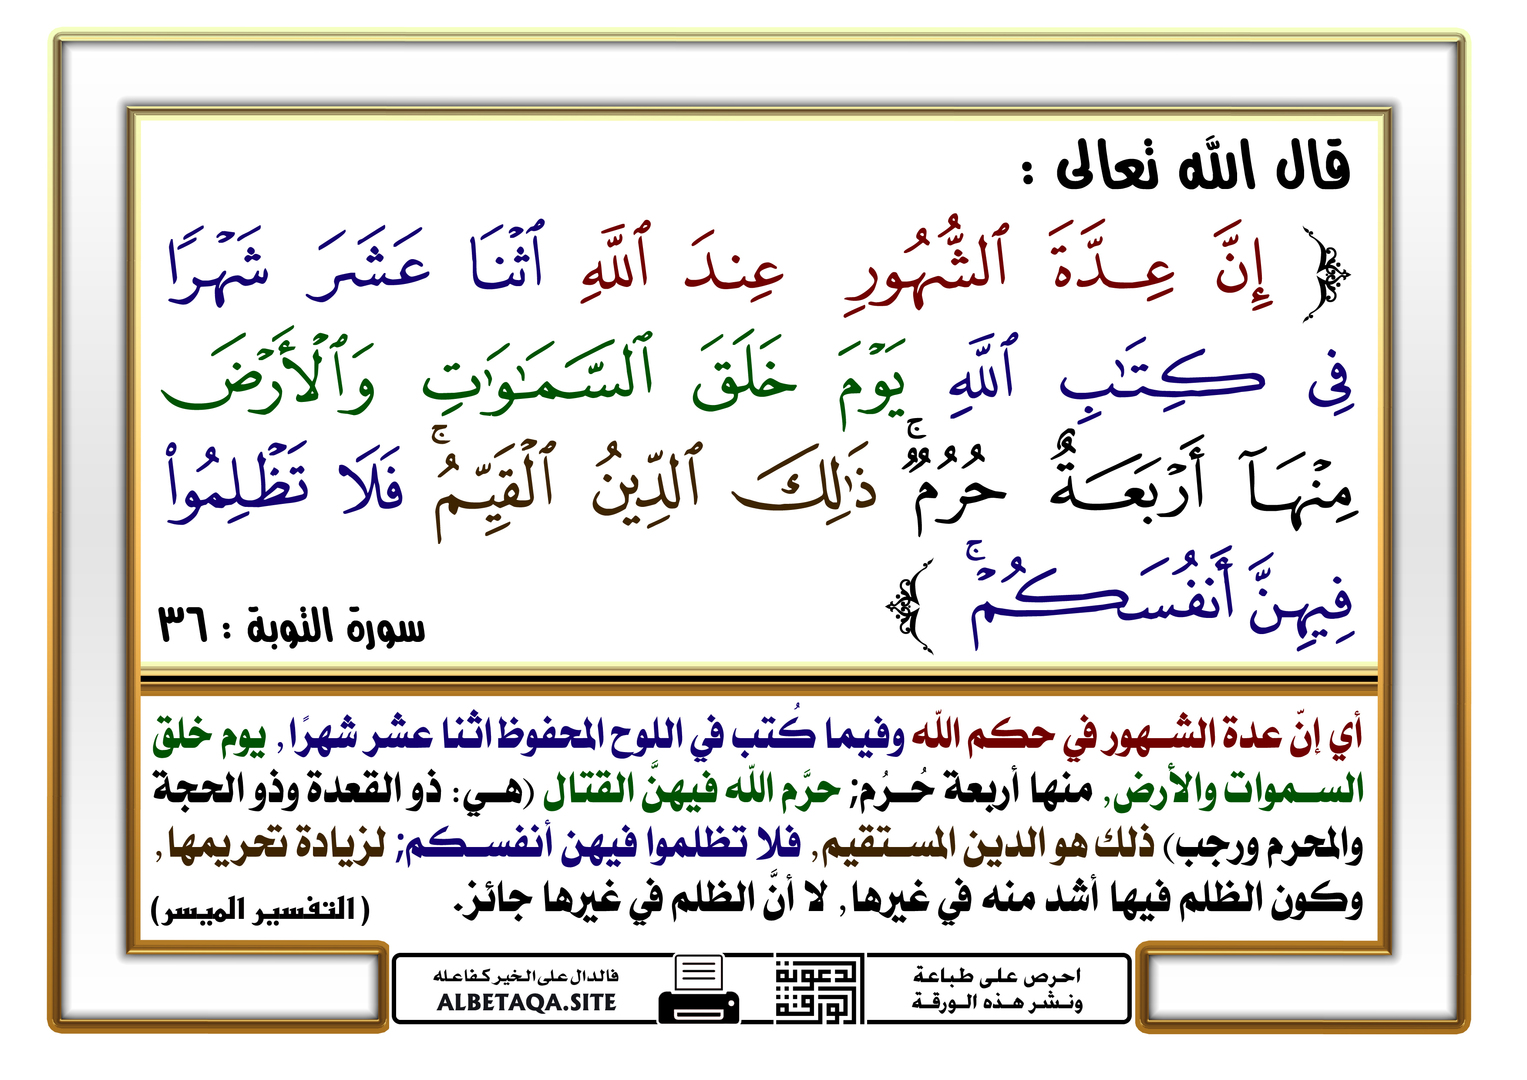 قال الله تعالى :
﴿ إِنَّ عِدَّةَ ٱلشُّهُورِ عِندَ ٱللَّهِ ٱثْنَا عَشَرَ شَهْرًا
فِى كِتَٰبِ ٱللَّهِ يَوْمَ خَلَقَ ٱلسَّمَٰوَٰتِ وَٱلْأَرْضَ
مِنْهَآ أَرْبَعَةٌ حُرُمٌ ۚ ذَٰلِكَ ٱلدِّينُ ٱلْقَيِّمُ ۚ فَلَا تَظْلِمُوا۟
فِيهِنَّ أَنفُسَكُمْ ۚ ﴾
سورة التوبة : ٣٦
أي إنّ عدة الشهور في حكم الله وفيما كُتب في اللوح المحفوظ اثنا عشر شهرًا, يوم خلق
السموات والأرض, منها أربعة حُرُم; حرَّم الله فيهنَّ القتال (هي: ذو القعدة وذو الحجة
والمحرم ورجب) ذلك هو الدين المستقيم, فلا تظلموا فيهن أنفسكم; لزيادة تحريمها,
وكون الظلم فيها أشد منه في غيرها, لا أنَّ الظلم في غيرها جائز.
(التفسير الميسر)
احرص على طباعة
ونشر هذه الورقة
الدعوية
الورقة
فالدال على الخير كفاعله
ALBETAQA.SITE